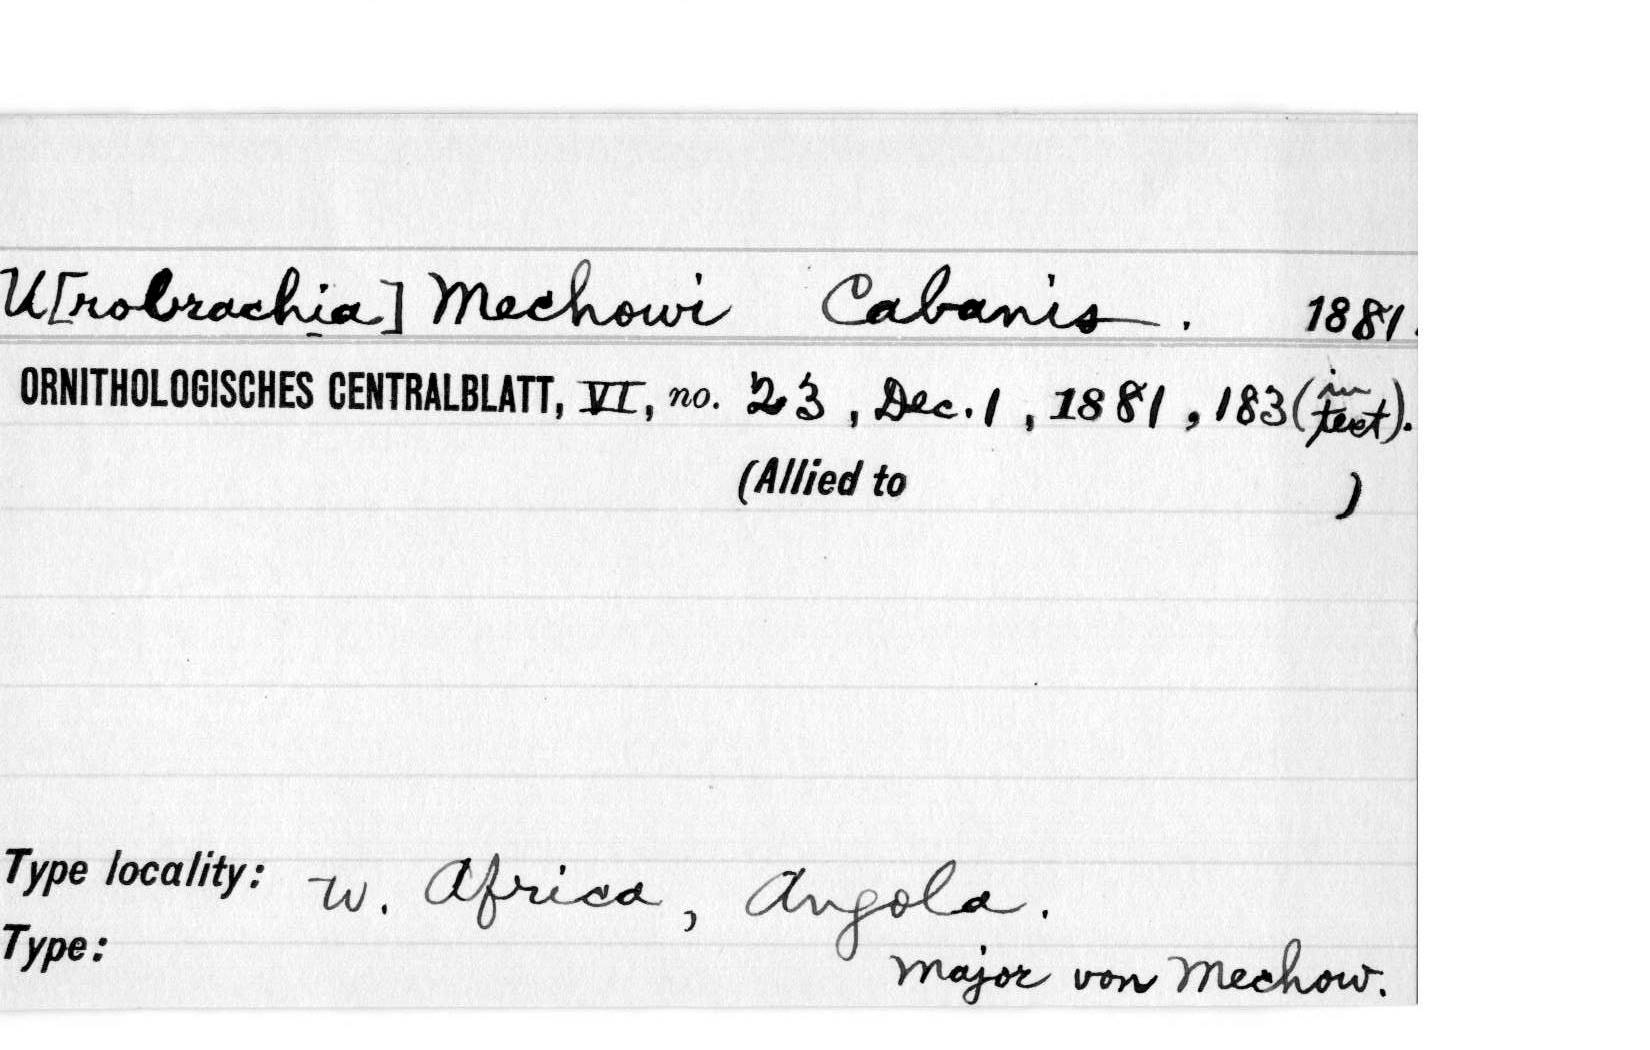 U[robrachia] Mechowi Cabanis. 1881.
ORNITHOLOGISCHES CENTRALBLATT, VI, no. 23, Dec. 1, 1881, 183 (in text).
(Allied to )
Type locality: W. Africa, Angola.
Type:
Major von Mechow.